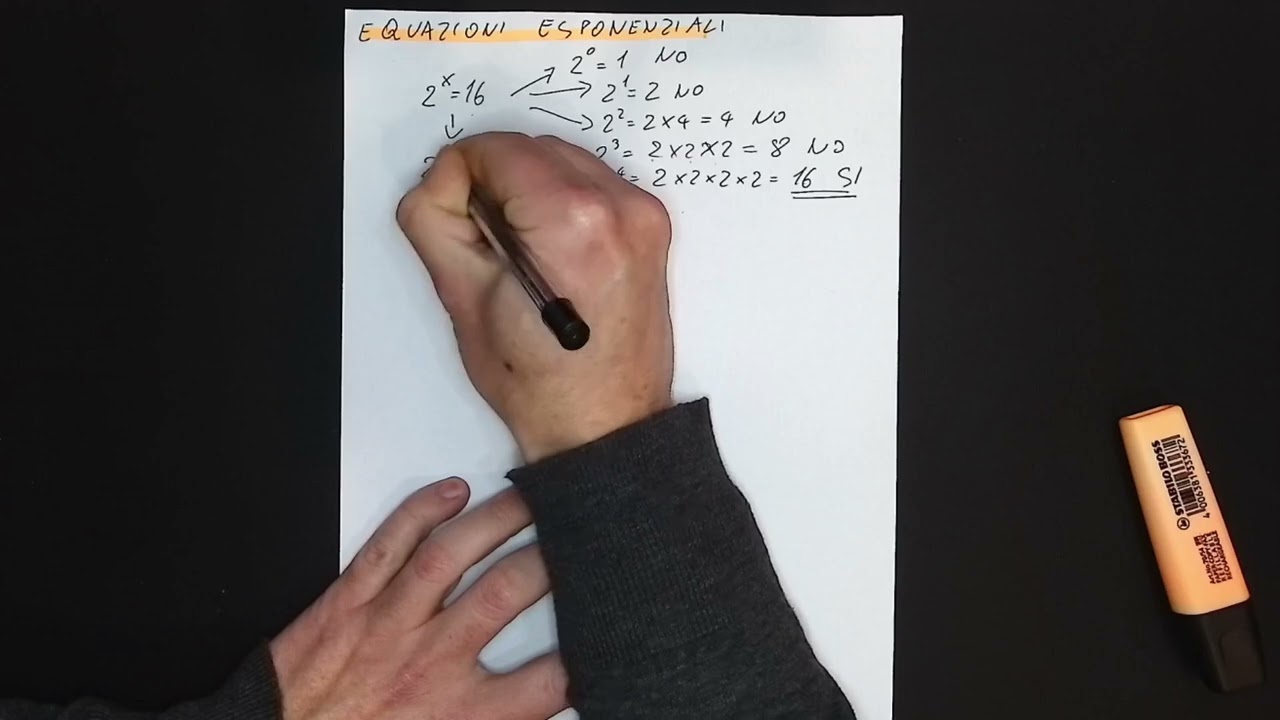 EQUAZIONI ESPONENZIALI
2⁰ = 1 NO
2ˣ = 16
2¹ = 2 NO
2² = 2 × 4 = 4 NO
2³ = 2 × 2 × 2 = 8 NO
= 2 × 2 × 2 × 2 = 16 SI
STABILO BOSS
4006381553672